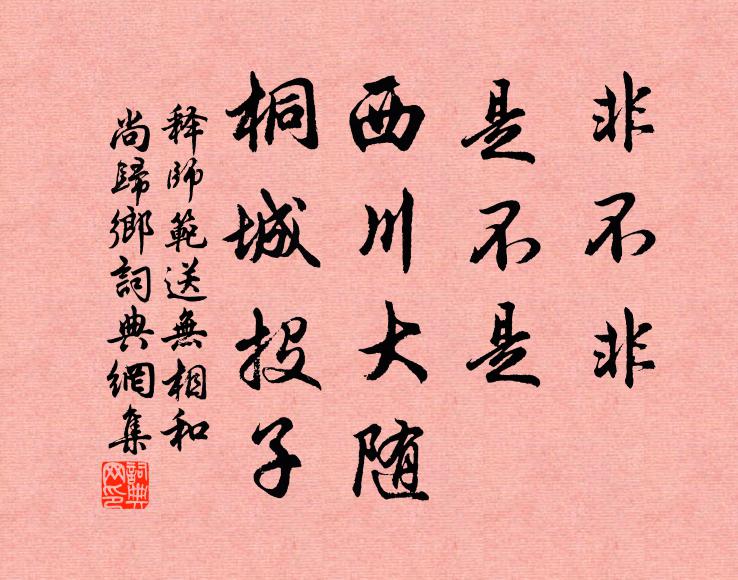 非不非
是不是
西川大随
桐城投子
释师範送無相和
尚歸鄉詞典網集
詞典
网印